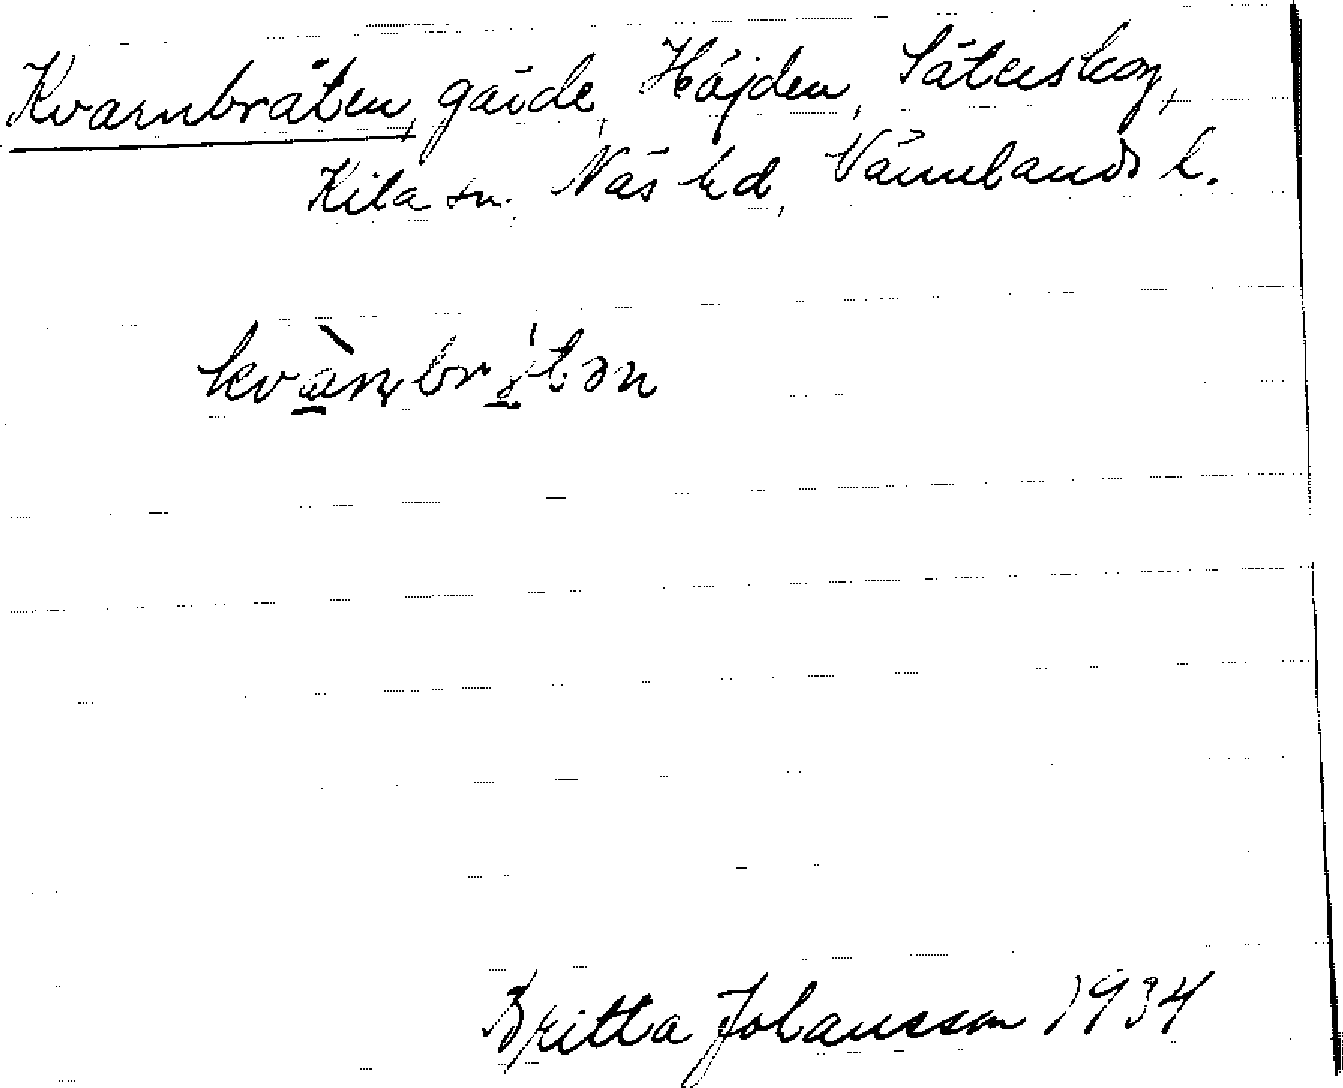 Kvarnbråten, gärde, Höjden, Säterskog,
Kila sn. Näs hd, Värmlands l.
Britta Johansson 1934